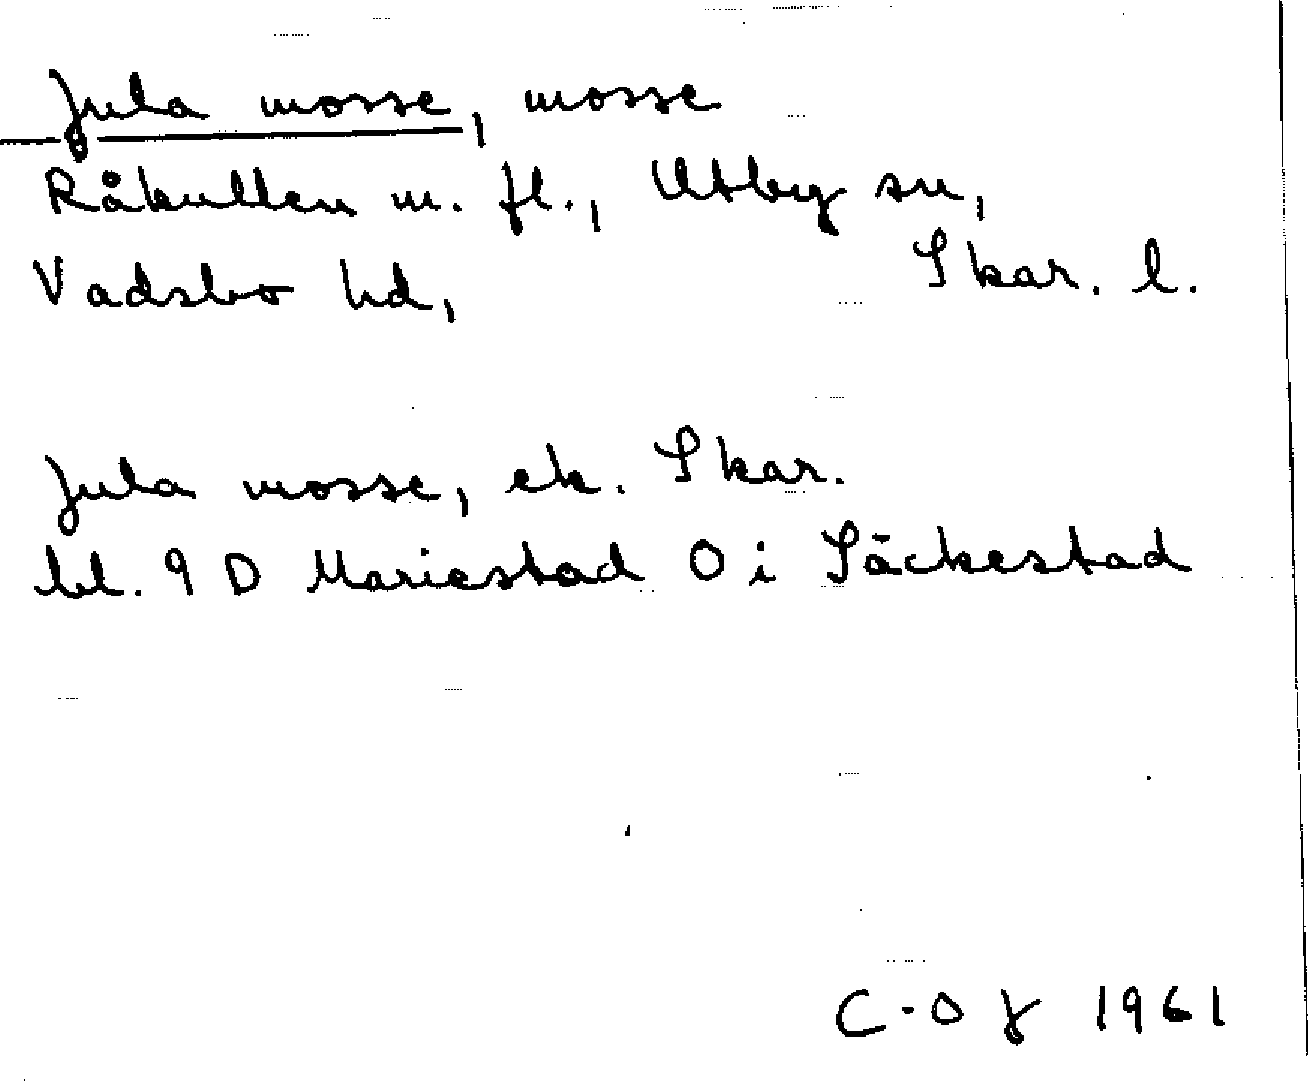 Jula mosse, mosse
Råkullen m. fl., Utby sn,
Vadsbo hd, Skar. l.
Jula mosse, ek. Skar.
bl. 9 D Mariestad O i Säckestad
C-O J 1961